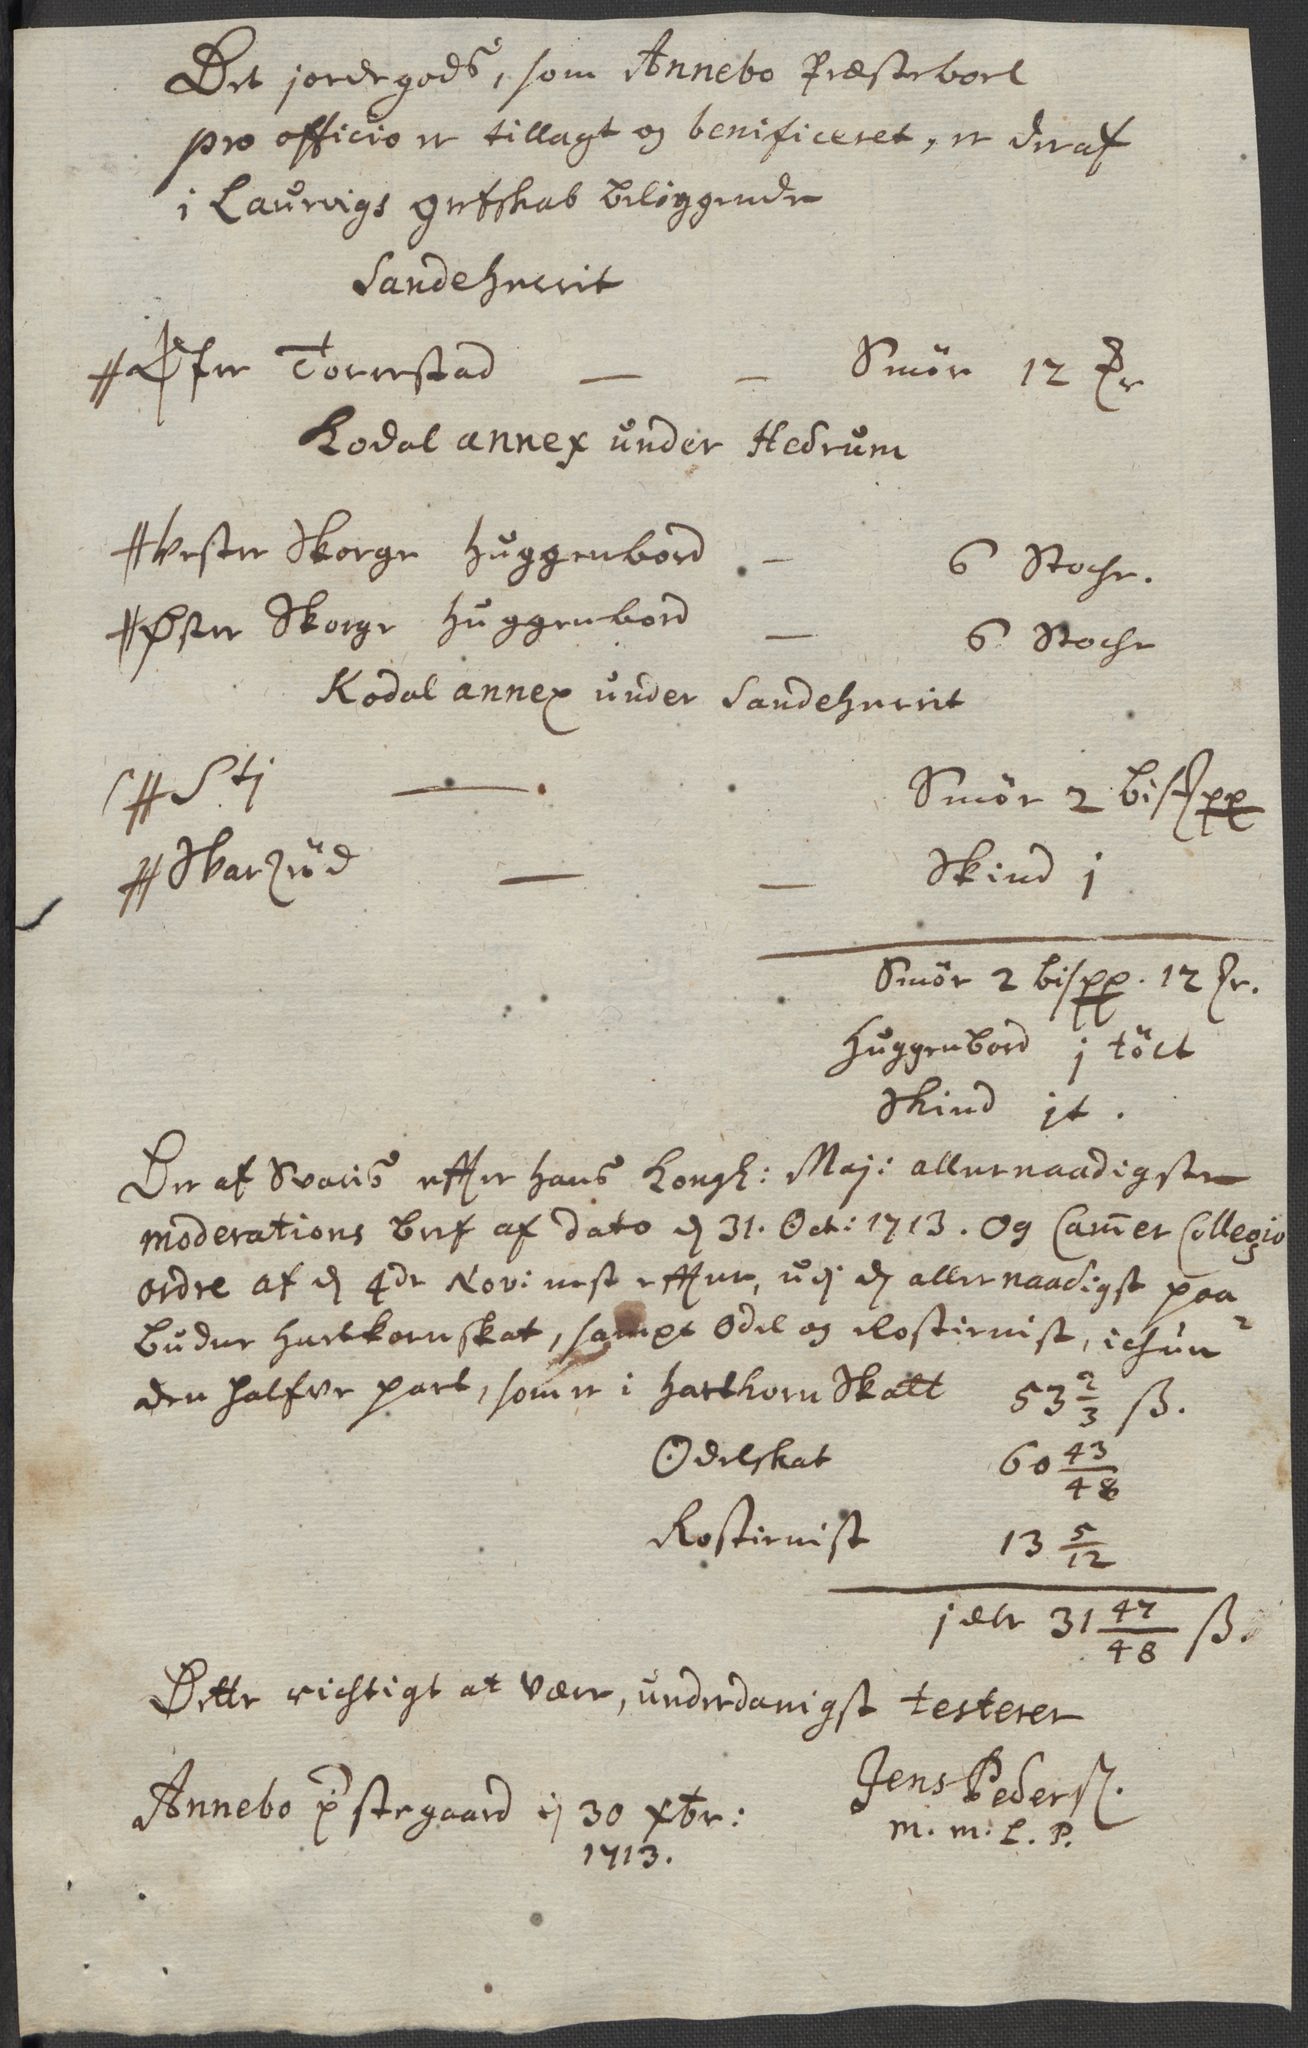 Det jordegods, som Annebo Præsteboel
pro officio er tillagt og benificeret, er deraf
i Laurvigs grefskab beliggende
Sandeherrit
# Øfre Torerstad — — Smör 12
Kodal annex under Hedrum
# Vester Skorge huggenbord — 6 Stoche.
# Øster Skorge huggenbord — 6 Stoche
Kodal annex under Sandeherrit
# Stj — Smör 2 bispp
# Skarsröd — — Skind j
Smör 2 bispp. 12
huggenbord j tölt
Skind jt.
Der af Svaris effter hans Kongl: Maj: allernaadigste
moderations bref af dato d 31. Oct: 1713. Og Camer Collegio
ordre af d 4de Nov: nest effter, udj d allernaadigst paa
budne hartkornskat, sampt Odel og Rostienist, ichun
den halfve part, som er i hartkorn Skatt 53 2/3 ß.
Odelskat 60 43/48
Rostienist 13 5/12
j dlr 31 47/48 ß.
Dette richtigt at være, underdanigst testerer
Annebo pstegaard d 30 xbr:
1713.
Jens Peders.
m. m: L. P.